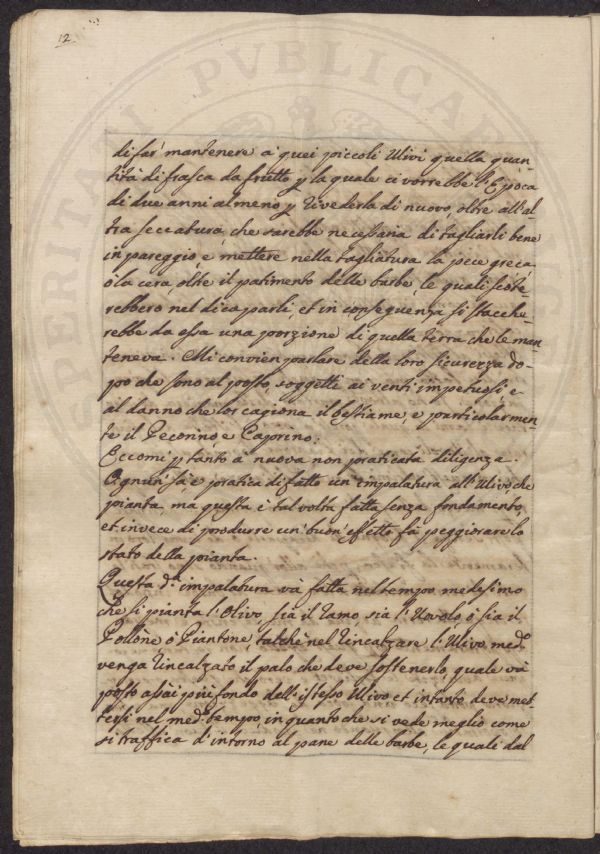 12
di far' mantenere a' quei piccoli Ulivi quella quan-
tità di frasca da frutto, p la quale ci vorrebbe l'Epoca
di due anni almeno p rivederla di nuovo, oltre all'al-
tra seccatura, che sarebbe necessaria di tagliarli bene
in pareggio e mettere nella tagliatura la pece greca,
ò la cera oltre il patimento delle barbe, le quali scote-
rebbero nel dicaparli, et in conseguenza si stacche-
rebbe da essa una porzione di quella terra che le man-
teneva. Mi convien parlare della loro sicurezza do-
po che sono al posto soggetti ai venti impetuosi, e
al danno che lor cagiona il bestiame, e particolarmen-
te il Pecorino, e Caprino.
Eccomi p tanto à nuova non praticata diligenza.
Ognun' sà, e pratica di fatto un' impalatura all'Ulivo, che
pianta, ma questa è tal volta fatta senza fondamento,
et invece di produrre un' buon' effetto fà peggiorare lo
stato della pianta.
Questa d.ª impalatura và fatta nel tempo medesimo
che si pianta l'Olivo, sia il ramo, sia l'Uovolo, ò sia il
Pollone ò Piantone, talchè nel rincalzare l'Ulivo, med.º
venga rincalzato il palo che deve sostenerlo, quale và
posto assai più fondo dell'istesso Ulivo et intanto deve met-
tersi nel med.º tempo, in quanto che si vede meglio come
si traffica d'intorno al pane delle barbe, le quali dal
VERITATI PVBLICAE